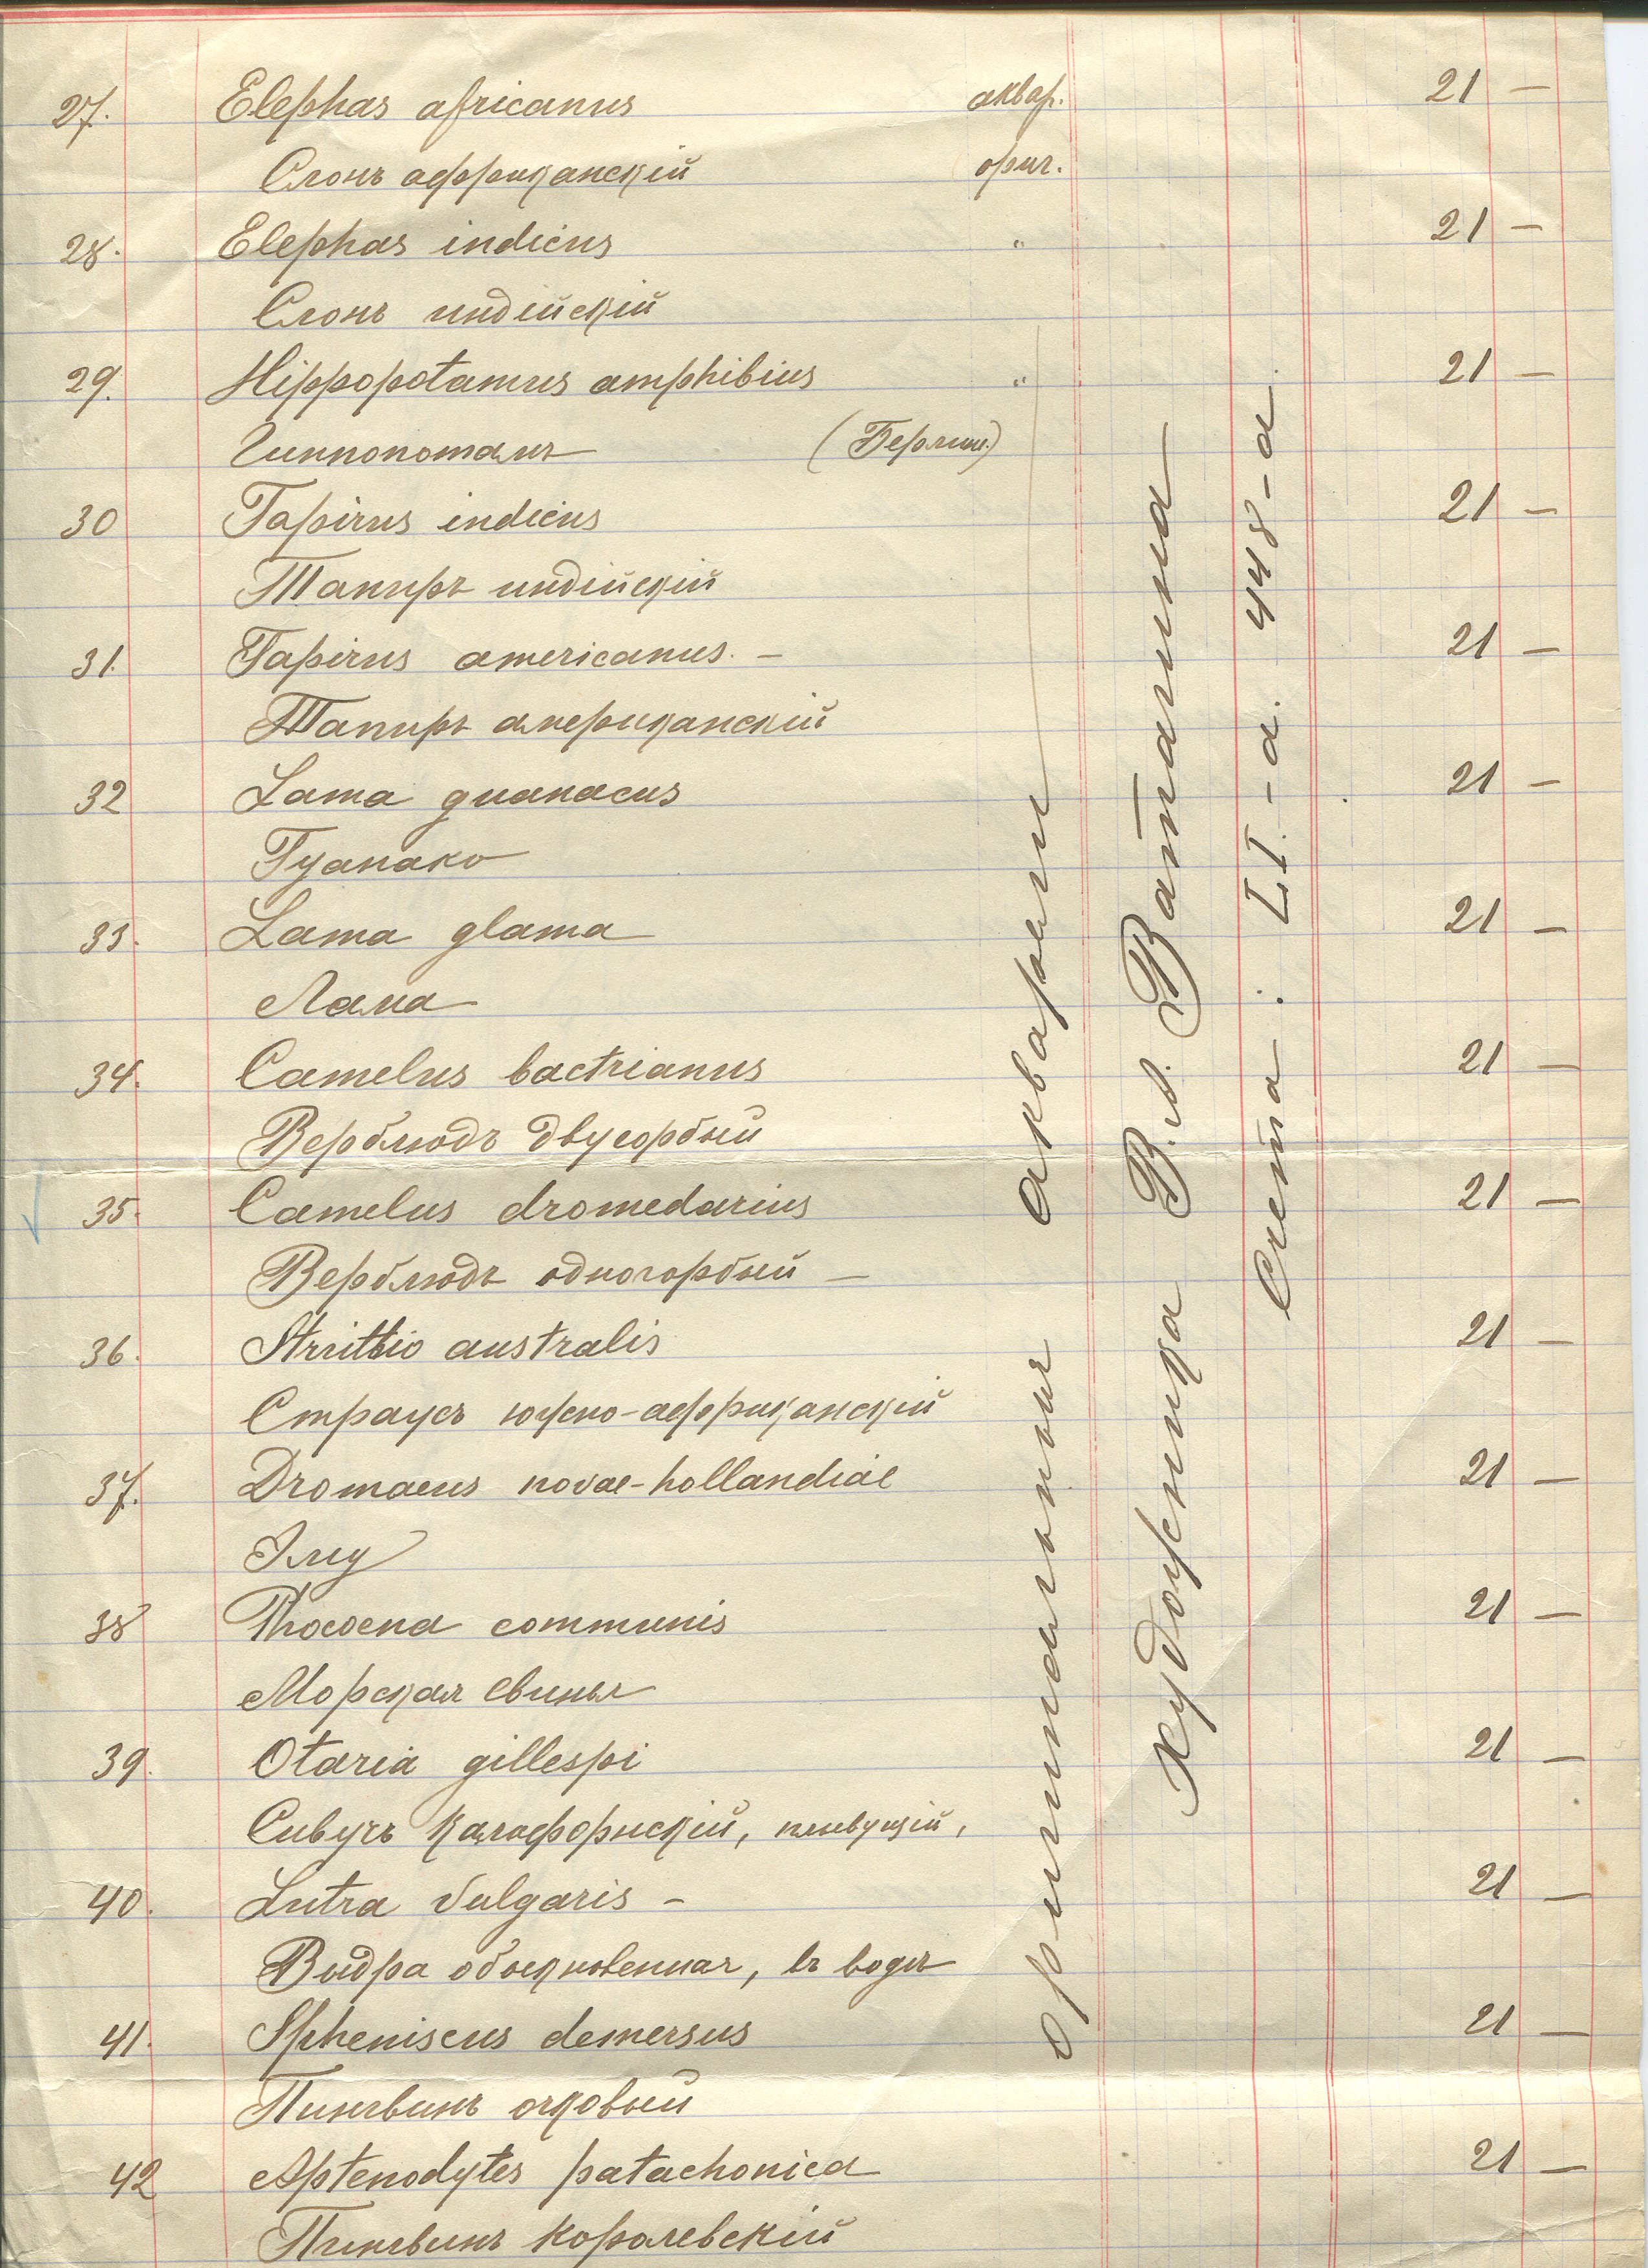 27. Elephas africanus аквар. 21 —
Слонъ аффриканскій ориг.
28. Elephas indicus " 21 —
Слонъ индійскій
29. Hippopotamus amphibius " 21 —
Гиппопотамъ (Берлин.)
30 Tapirus indicus 21 —
Тапиръ индійскій
31. Tapirus americanus. — 21 —
Тапиръ американскій
32 Lama guanacus 21 —
Гуанако
33. Lama glama 21 —
Лама
34. Camelus bactrianus 21 —
Верблюдъ двугорбый
35. Camelus dromedarius 21 —
Верблюдъ одногорбый —
36. Struthio australis 21 —
Страусъ южно-аффриканскій
37. Dromaeus novae-hollandiae 21 —
Эму
38 Phocoena communis 21 —
Морская свинья
39. Otaria gillespi 21 —
Сивучъ калифорнскій, плывущій,
40. Lutra vulgaris - 21 —
Выдра обыкновенная, въ водѣ
41. Spheniscus demersus 21 —
Пингвинъ очковый
42 Aptenodytes patachonica 21 —
Пингвинъ королевскій
оригинальныя акварели
художника В.А. Ватагина
Счета: LI.-а. 448-а.